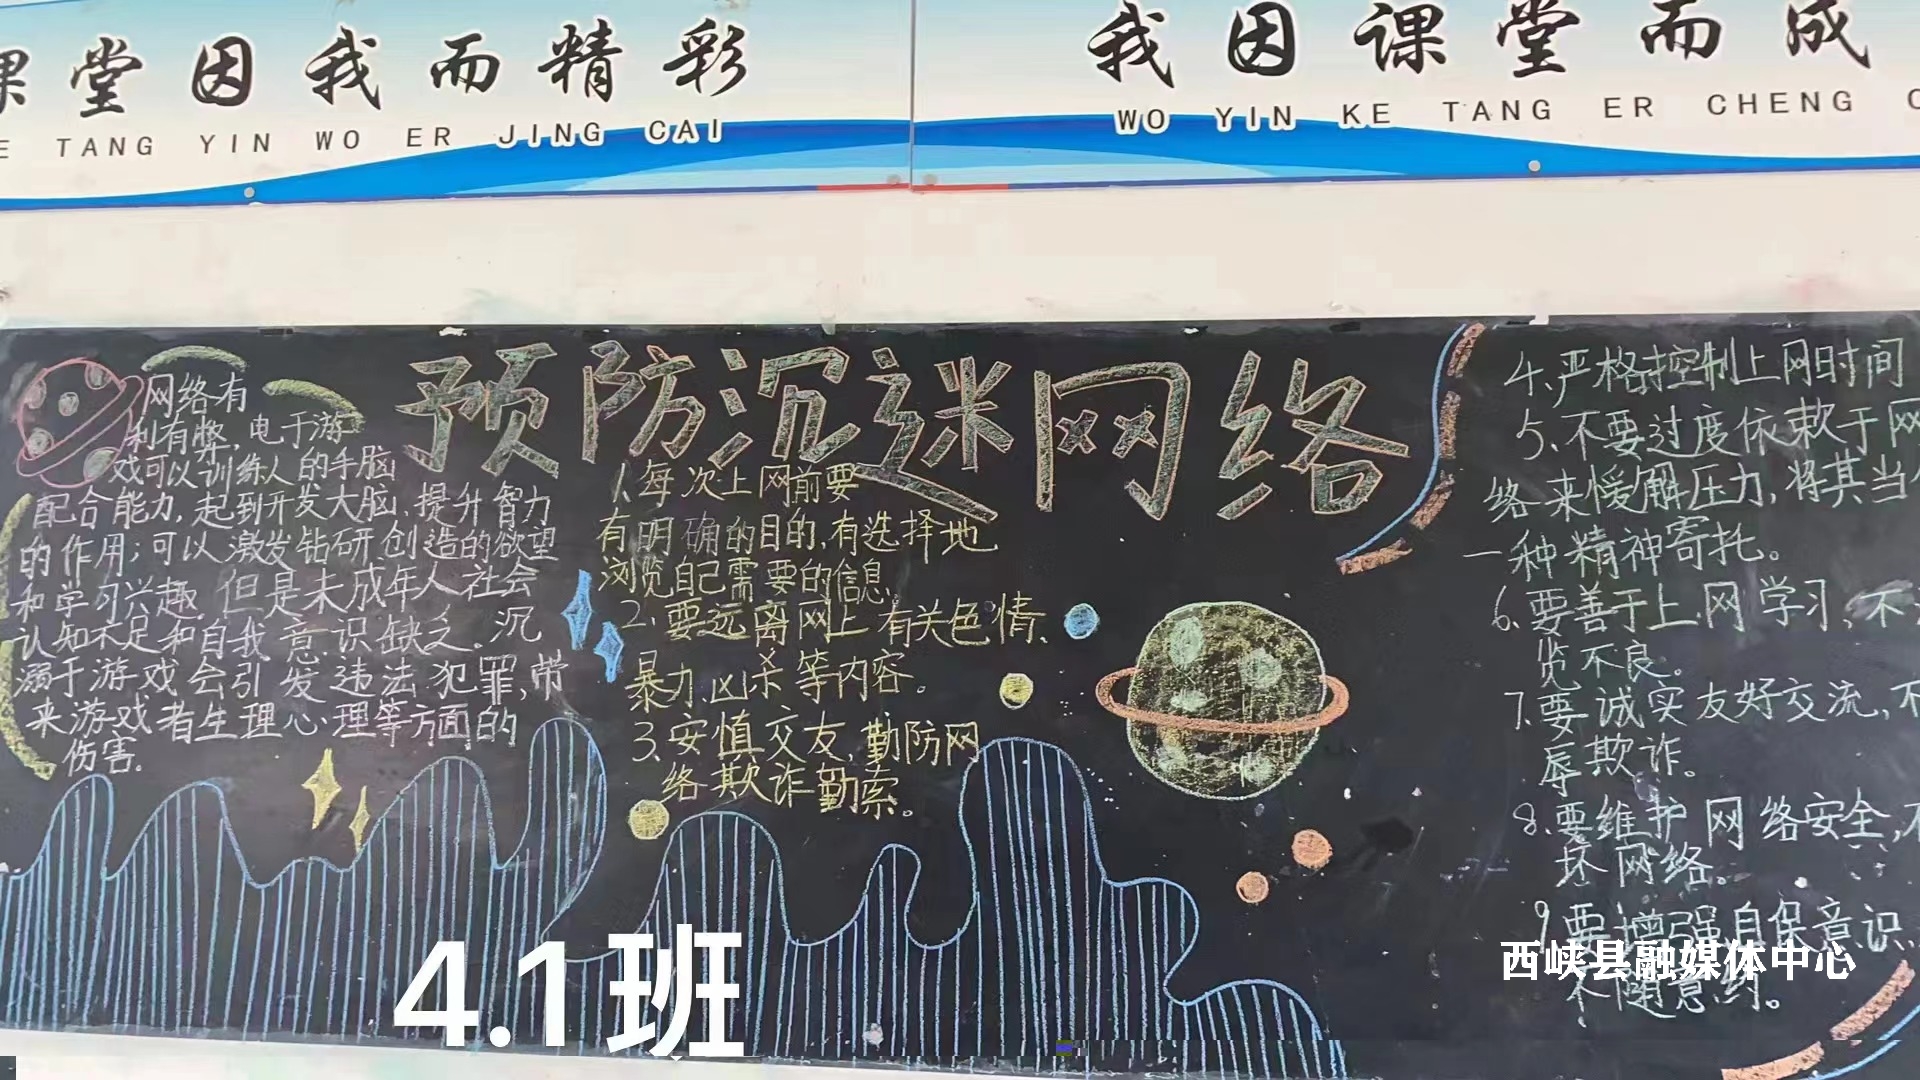 课堂因我而精彩
TANG YIN WO ER JING CAI
我因课堂而成
WO YIN KE TANG ER CHENG
预防沉迷网络
网络有
利有弊,电于游
戏可以训练人的手脑
配合能力,起到开发大脑、提升智力
的作用;可以激发钻研、创造的欲望
和学习兴趣。但是未成年人社会
认知不足和自我意识缺乏。沉
溺于游戏会引发违法犯罪,带
来游戏者生理心理等方面的
伤害.
1、每次上网前要
有明确的目的,有选择地
浏览自己需要的信息。
2、要远离网上有关色情、
暴力、凶杀等内容。
3、安慎交友,勤防网
络欺诈勤索。
4、严格控制上网时间
5、不要过度依束于网
络来慢解压力,将其当
一种精神寄托。
6、要善于上网学习,不
览不良。
7、要诚实友好交流,不
辱欺诈。
8、要维护网络安全,不
坏网络。
9要增强自保意识
不随意约。
4.1班
西峡县融媒体中心